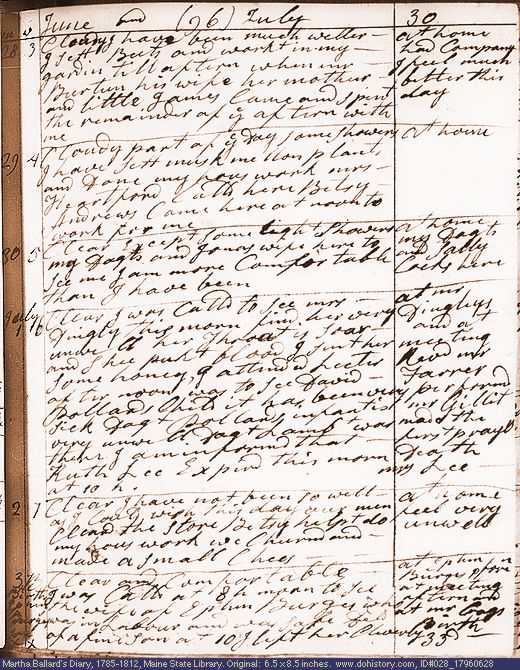 June and (26) July 30
28 3 Cloudy I have been much better at home
I Sett Beets and workt in my had Company
gardin till aftern when mr I feel much
Burtun his wife her mother better this
and little James Came and spent day
the remainder of ye aftern with
me
29 4 Cloudy part of ye Day some showers at home
I have sett musk mellion plants
and Done my hous work mrs
Heartford Calld here Betsy
Andrews Came here at noon to
work for me
30 5 Clear Except some ligh showers at home
my Dagts and Jons wife here to my Dagts
See me I am more Comfortable and Sally
than I have been Coks here
July
1 6 Clear I was Calld to See mrs at mr
Dingly this morn find her very Dinglys
unwell her Throat is soar and at
and She pukt blood I sint her meeting
Some honey, I attend Lectur Revd mr
after noon, was to See David Farrer
Bollards Child it has been very performd
Sick Dagt Bolland infant is mr Gillit
very unwell Dagt Lamb was made the
there I am informd that first prayr
Ruth Lee Expird this morn Death
at 10 h mrs Lee
2 7 Clear I have not been so well at home
as I Could wish this day our men feel very
Cleand the Store Betsy helpt do unwell
my hous work we Churnd and
made a Small Chees
3 Clear and Comfortable at Ephm
I was Calld at 8 h moan to See Burges
the wife of Ephm Burges who at meeting
was in Labour She was safe and at mr
of a fine Son at 10 I left her Cleverly Birth 33
Martha Ballard's Diary, 1785-1812, Maine State Library. Original: 6.5 x 8.5 inches. www.dohistory.com, ID#028_17960628